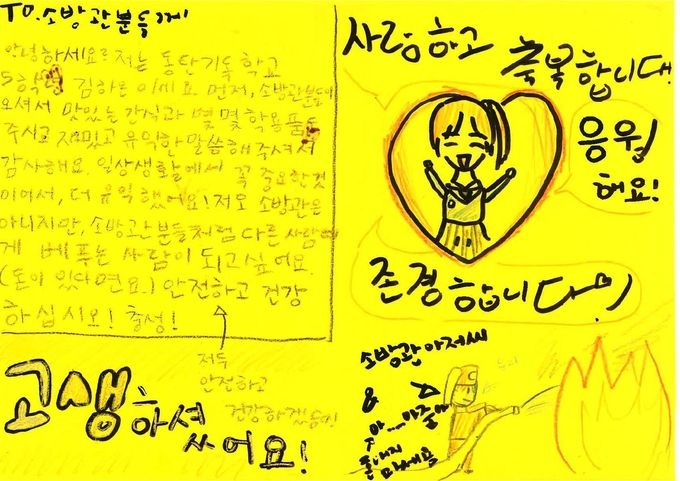 TO.소방관분들께
안녕하세요? 저는 동탄기독학교
5학년 김하은이에요. 먼저, 소방관분들이
오셔서 맛있는 간식과 몇몇 학용품도
주시고 재밌고 유익한 말씀해주셔서
감사해요. 일상생활에서 꼭 중요한 것
이여서, 더 유익했어요! 저도 소방관은
아니지만, 소방관분들처럼 다른 사람에
게 베푸는 사람이 되고싶어요.
(돈이 있다면요.) 안전하고 건강
하십시요! 충성!
저두
안전하고
건강하겠습니다!
고생하셨
어요!
사랑하고
축복합니다!
응원
해요!
존경합니다!
소방관아저씨
&
아....아줌마